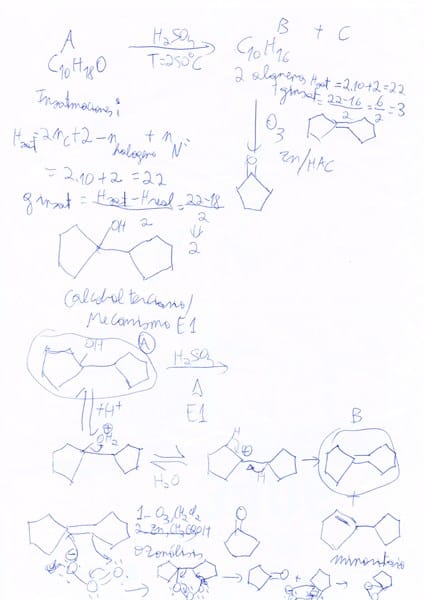 A
C10H18O
H2SO4
T=250°C
B + C
C10H16
2 alquenos
Hsat = 2.10+2 = 22
gInsat = 22-16/2 = 6/2 = 3
Insaturaciones:
Hsat = 2nC+2 - nhalogeno + nN =
= 2.10+2 = 22
g Insat = Hsat - Hreal/2 = 22-18/2
2
O3
Zn/HAC
O
OH
(alcohol terciario/
Mecanismo E1
OH
A
H2SO4
Δ
E1
+H+
OH2
H2O
H
H
B
+
1- O3, CH2Cl2
2- Zn, CH3COOH
Ozonólisis
O
minoritario
O
+